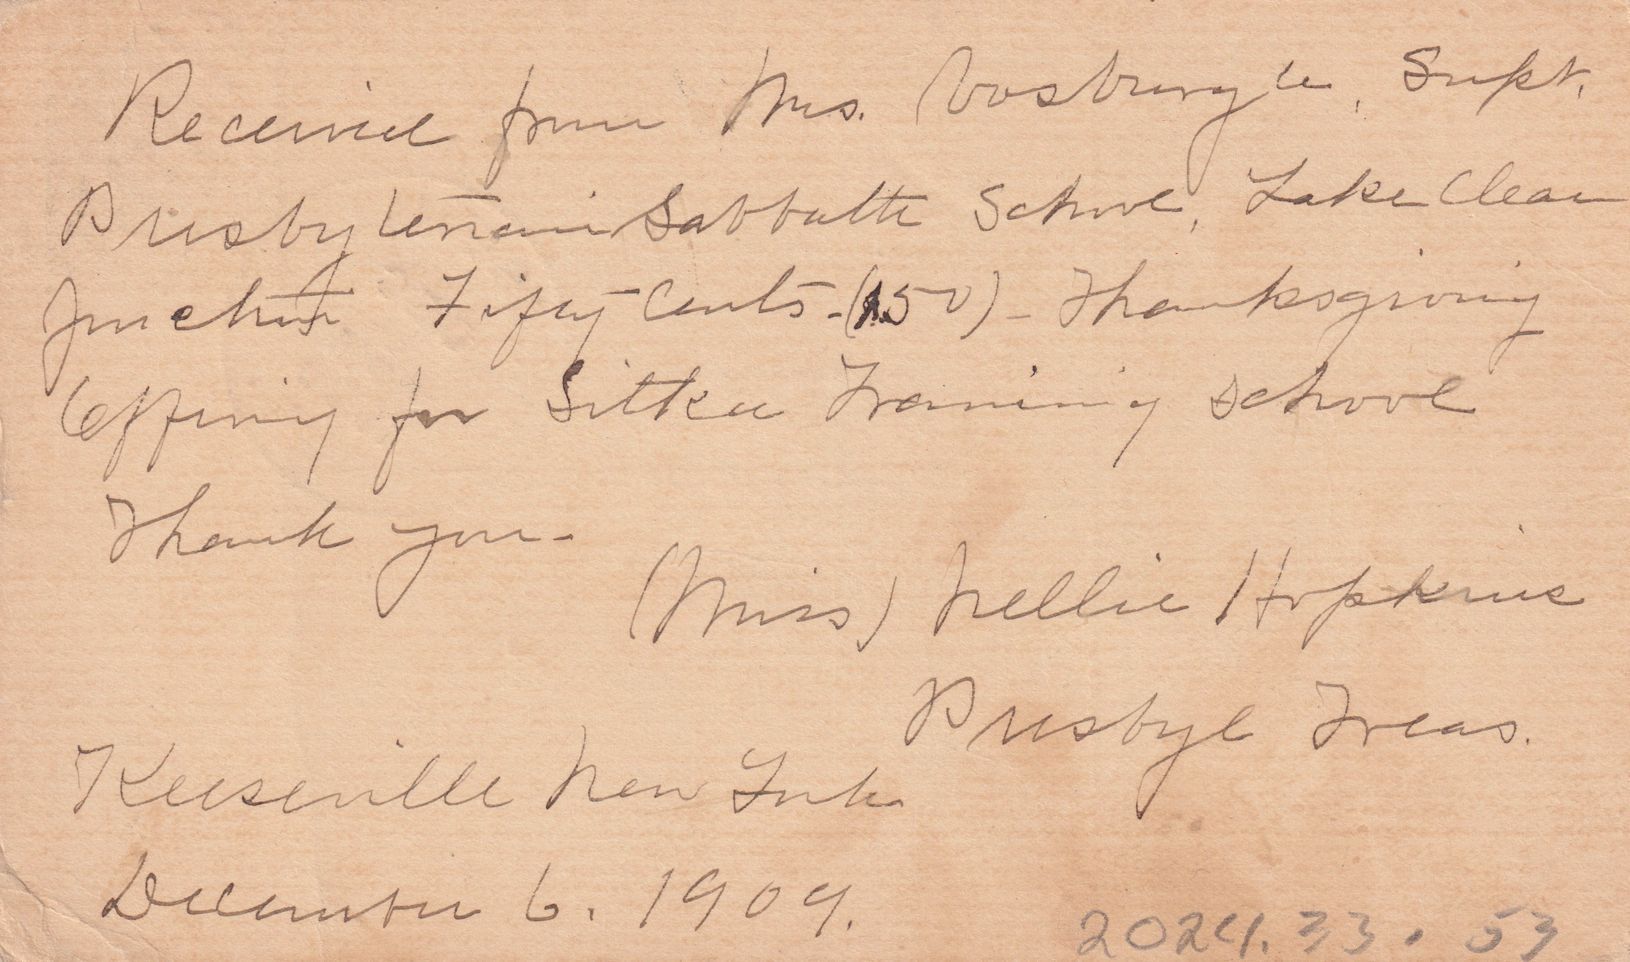 Received from Mrs. Vosburgh, Supt.
Presbyterian Sabbath School, Lake Clear
Junction Fifty Cents - (.50) - Thanksgiving
Offering for Sitka Training School
Thank you -
(Miss) Nellie Hopkins
Presbyl Treas.
Keeseville New York
December 6. 1909.
2024.33.53